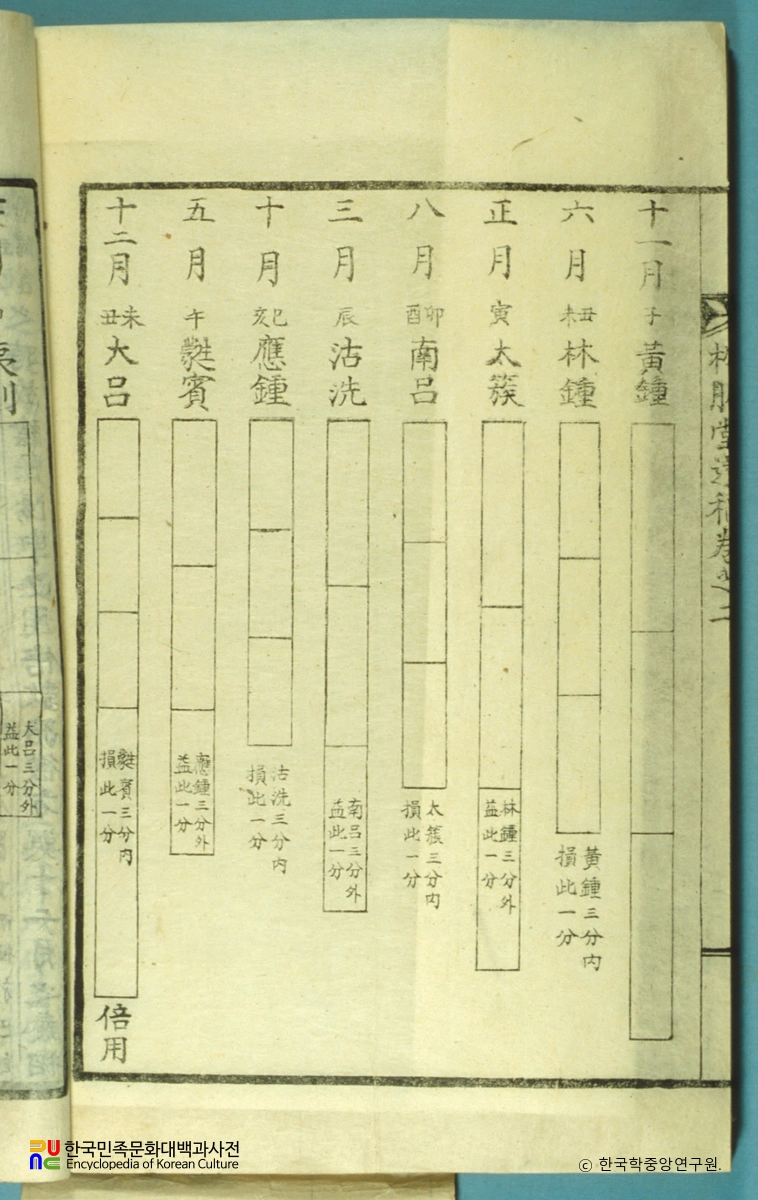 十一月 子 黃鍾
六月 丑未 林鍾
黃鍾三分内
損此一分
正月 寅 太簇
林鍾三分外
益此一分
八月 卯酉 南呂
太簇三分内
損此一分
三月 辰 沽洗
南呂三分外
益此一分
十月 巳亥 應鍾
沽洗三分内
損此一分
五月 午 蕤賓
應鍾三分外
益此一分
十二月 未丑 大呂
蕤賓三分内
損此一分
倍用
夷則
大呂三分外
益此一分
堂遺稿卷之二
한국민족문화대백과사전
Encyclopedia of Korean Culture
© 한국학중앙연구원.